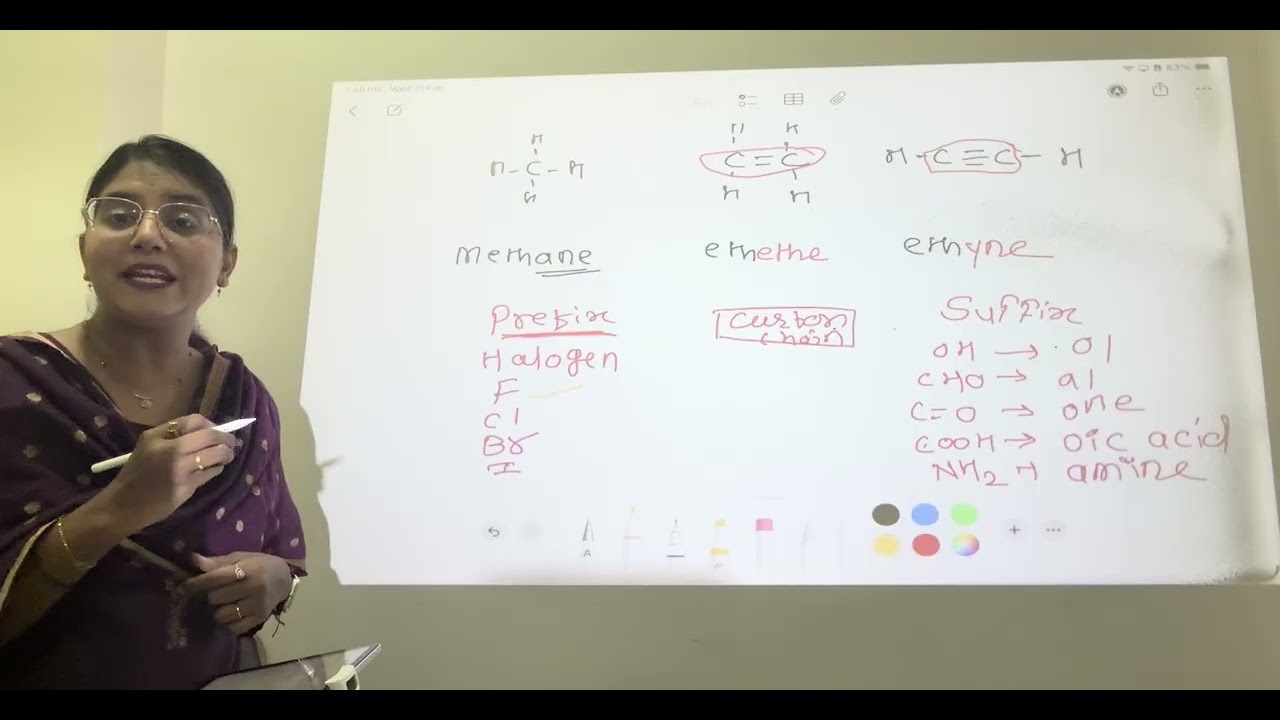 7:40 PM Wed 11 Feb 83%
H H H
H - C - H C = C H - C ≡ C - H
H H H
methane ethethe ethyne
Prefix Carbon Suffix
chain
Halogen OH → ol
F CHO → al
Cl C=O → one
Br COOH → oic acid
I NH2 → amine
A